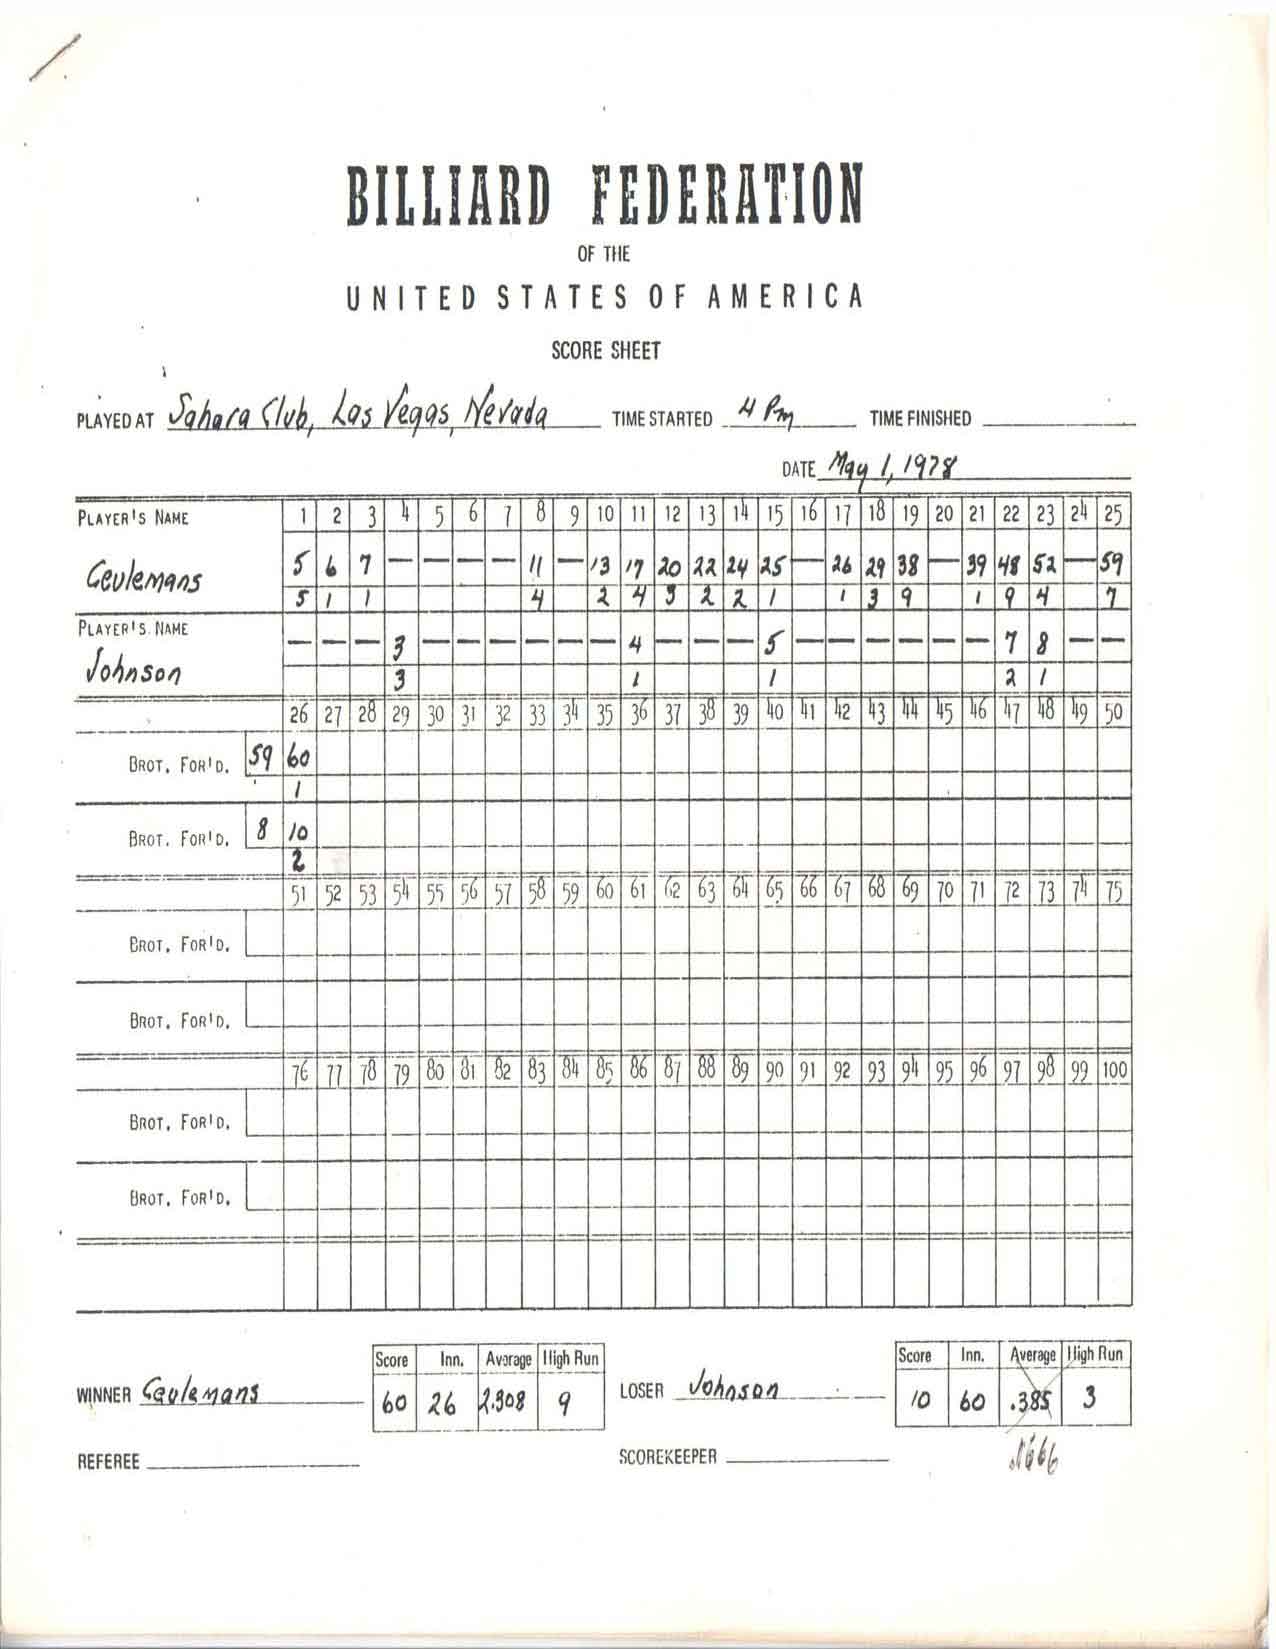 BILLIARD FEDERATION
OF THE
UNITED STATES OF AMERICA
SCORE SHEET
PLAYED AT Sahara Club, Las Vegas, Nevada TIME STARTED 4 Pm TIME FINISHED
DATE May 1, 1978
PLAYER'S NAME 1 2 3 4 5 6 7 8 9 10 11 12 13 14 15 16 17 18 19 20 21 22 23 24 25
Ceulemans 5 6 7 — — — — 11 — 13 17 20 22 24 25 — 26 29 38 — 39 48 52 — 59
5 1 1 4 2 4 3 2 2 1 1 3 9 1 9 4 7
PLAYER'S NAME
Johnson — — — 3 — — — — — — 4 — — — 5 — — — — — — 7 8 — —
3 1 1 2 1
26 27 28 29 30 31 32 33 34 35 36 37 38 39 40 41 42 43 44 45 46 47 48 49 50
BROT. FOR'D. 59 60
1
BROT. FOR'D. 8 10
2
51 52 53 54 55 56 57 58 59 60 61 62 63 64 65 66 67 68 69 70 71 72 73 74 75
BROT. FOR'D.
BROT. FOR'D.
76 77 78 79 80 81 82 83 84 85 86 87 88 89 90 91 92 93 94 95 96 97 98 99 100
BROT. FOR'D.
BROT. FOR'D.
Score Inn. Average High Run
WINNER Ceulemans 60 26 2.308 9
Score Inn. Average High Run
LOSER Johnson 10 60 .385 3
.1666
REFEREE SCOREKEEPER